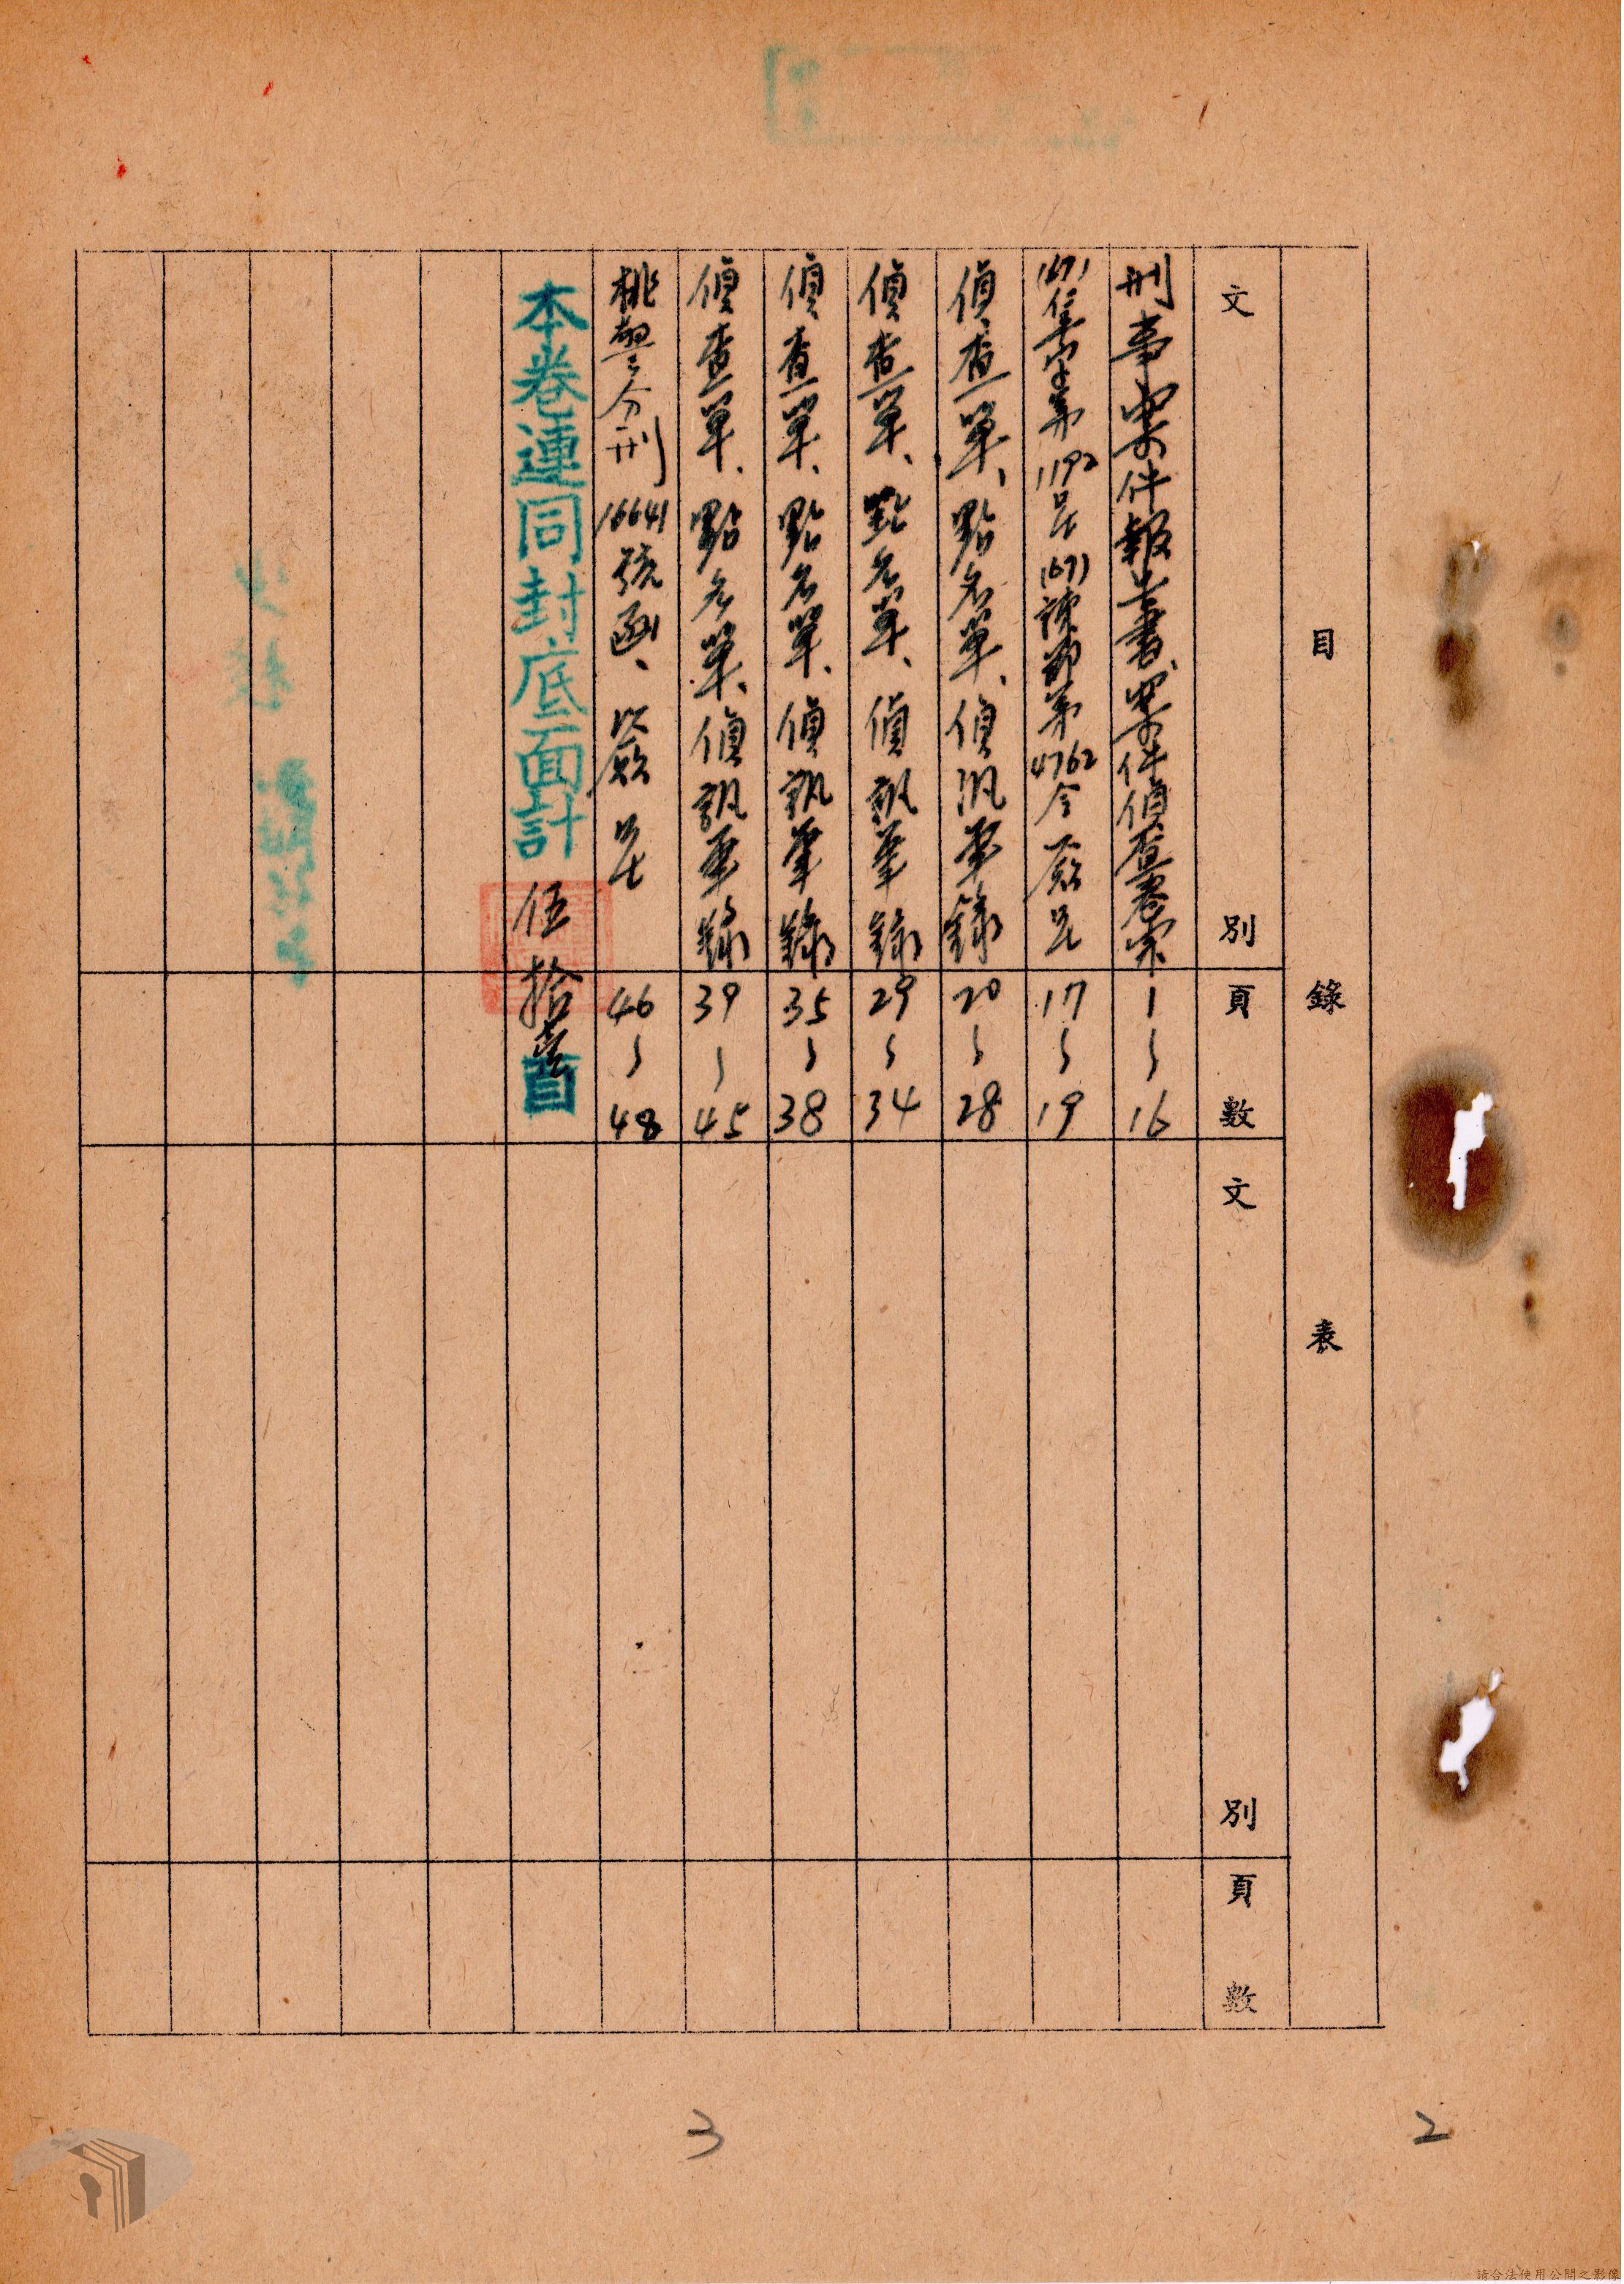 目錄表
文別
頁數
文別
頁數
刑事案件報告書、案件偵查卷宗
1～16
(67)
字第1192號(67)
第4762令
17～19
偵查單、點名單、偵訊筆錄
20～28
偵查單、點名單、偵訊筆錄
29～34
偵查單、點名單、偵訊筆錄
35～38
偵查單、點名單、偵訊筆錄
39～45
桃警分刑16641號函、
46～48
本卷連同封底面計伍拾壹頁
3
2
請合法使用公開之影像